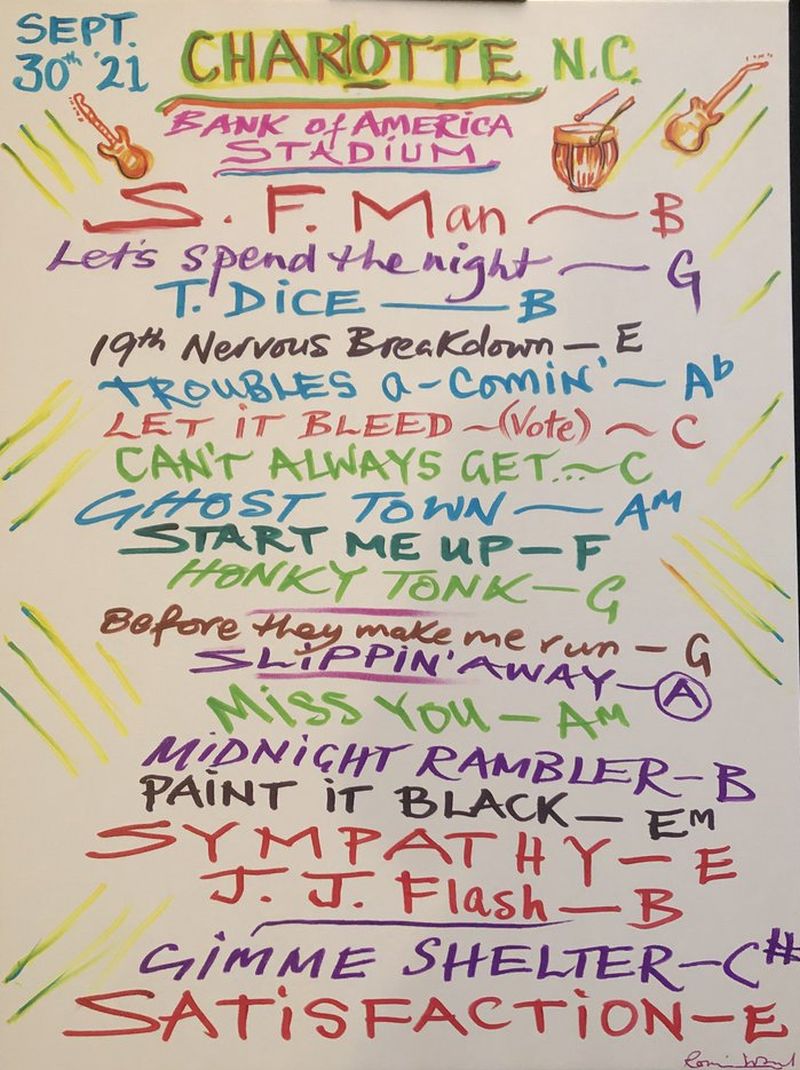 SEPT.
30th '21
CHARLOTTE N.C.
BANK of AMERICA
STADIUM
S. F. Man ~ B
Let's spend the night ~ G
T. DiCE — B
19th Nervous Breakdown — E
TROUBLES a-Comin' ~ Ab
LET iT BLEED ~ (Vote) ~ C
CAN'T ALWAYS GET...~ C
GHOST TOWN ~ AM
START ME UP — F
HONKY TONK — G
Before they make me run — G
SLiPPiN' AWAY — A
MiSS YOU — AM
MiDNiGHT RAMBLER — B
PAiNT iT BLACK — EM
SYMPATHY — E
J. J. Flash — B
GiMME SHELTER — C#
SATiSFACTiON — E